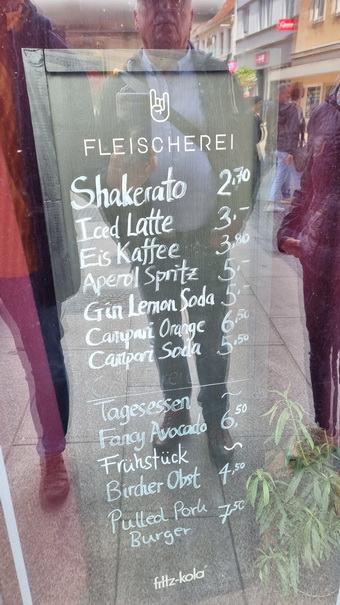 FLEISCHEREI
Shakerato 2,70
Iced Latte 3,-
Eis Kaffee 3,80
Aperol Spritz 5,-
Gin Lemon Soda 5,-
Campari Orange 6,50
Campari Soda 5,50
Tagesessen ~
Fancy Avocado 6,50
Frühstück ~
Bircher Obst 4,50
Pulled Pork 7,50
Burger
fritz-kola